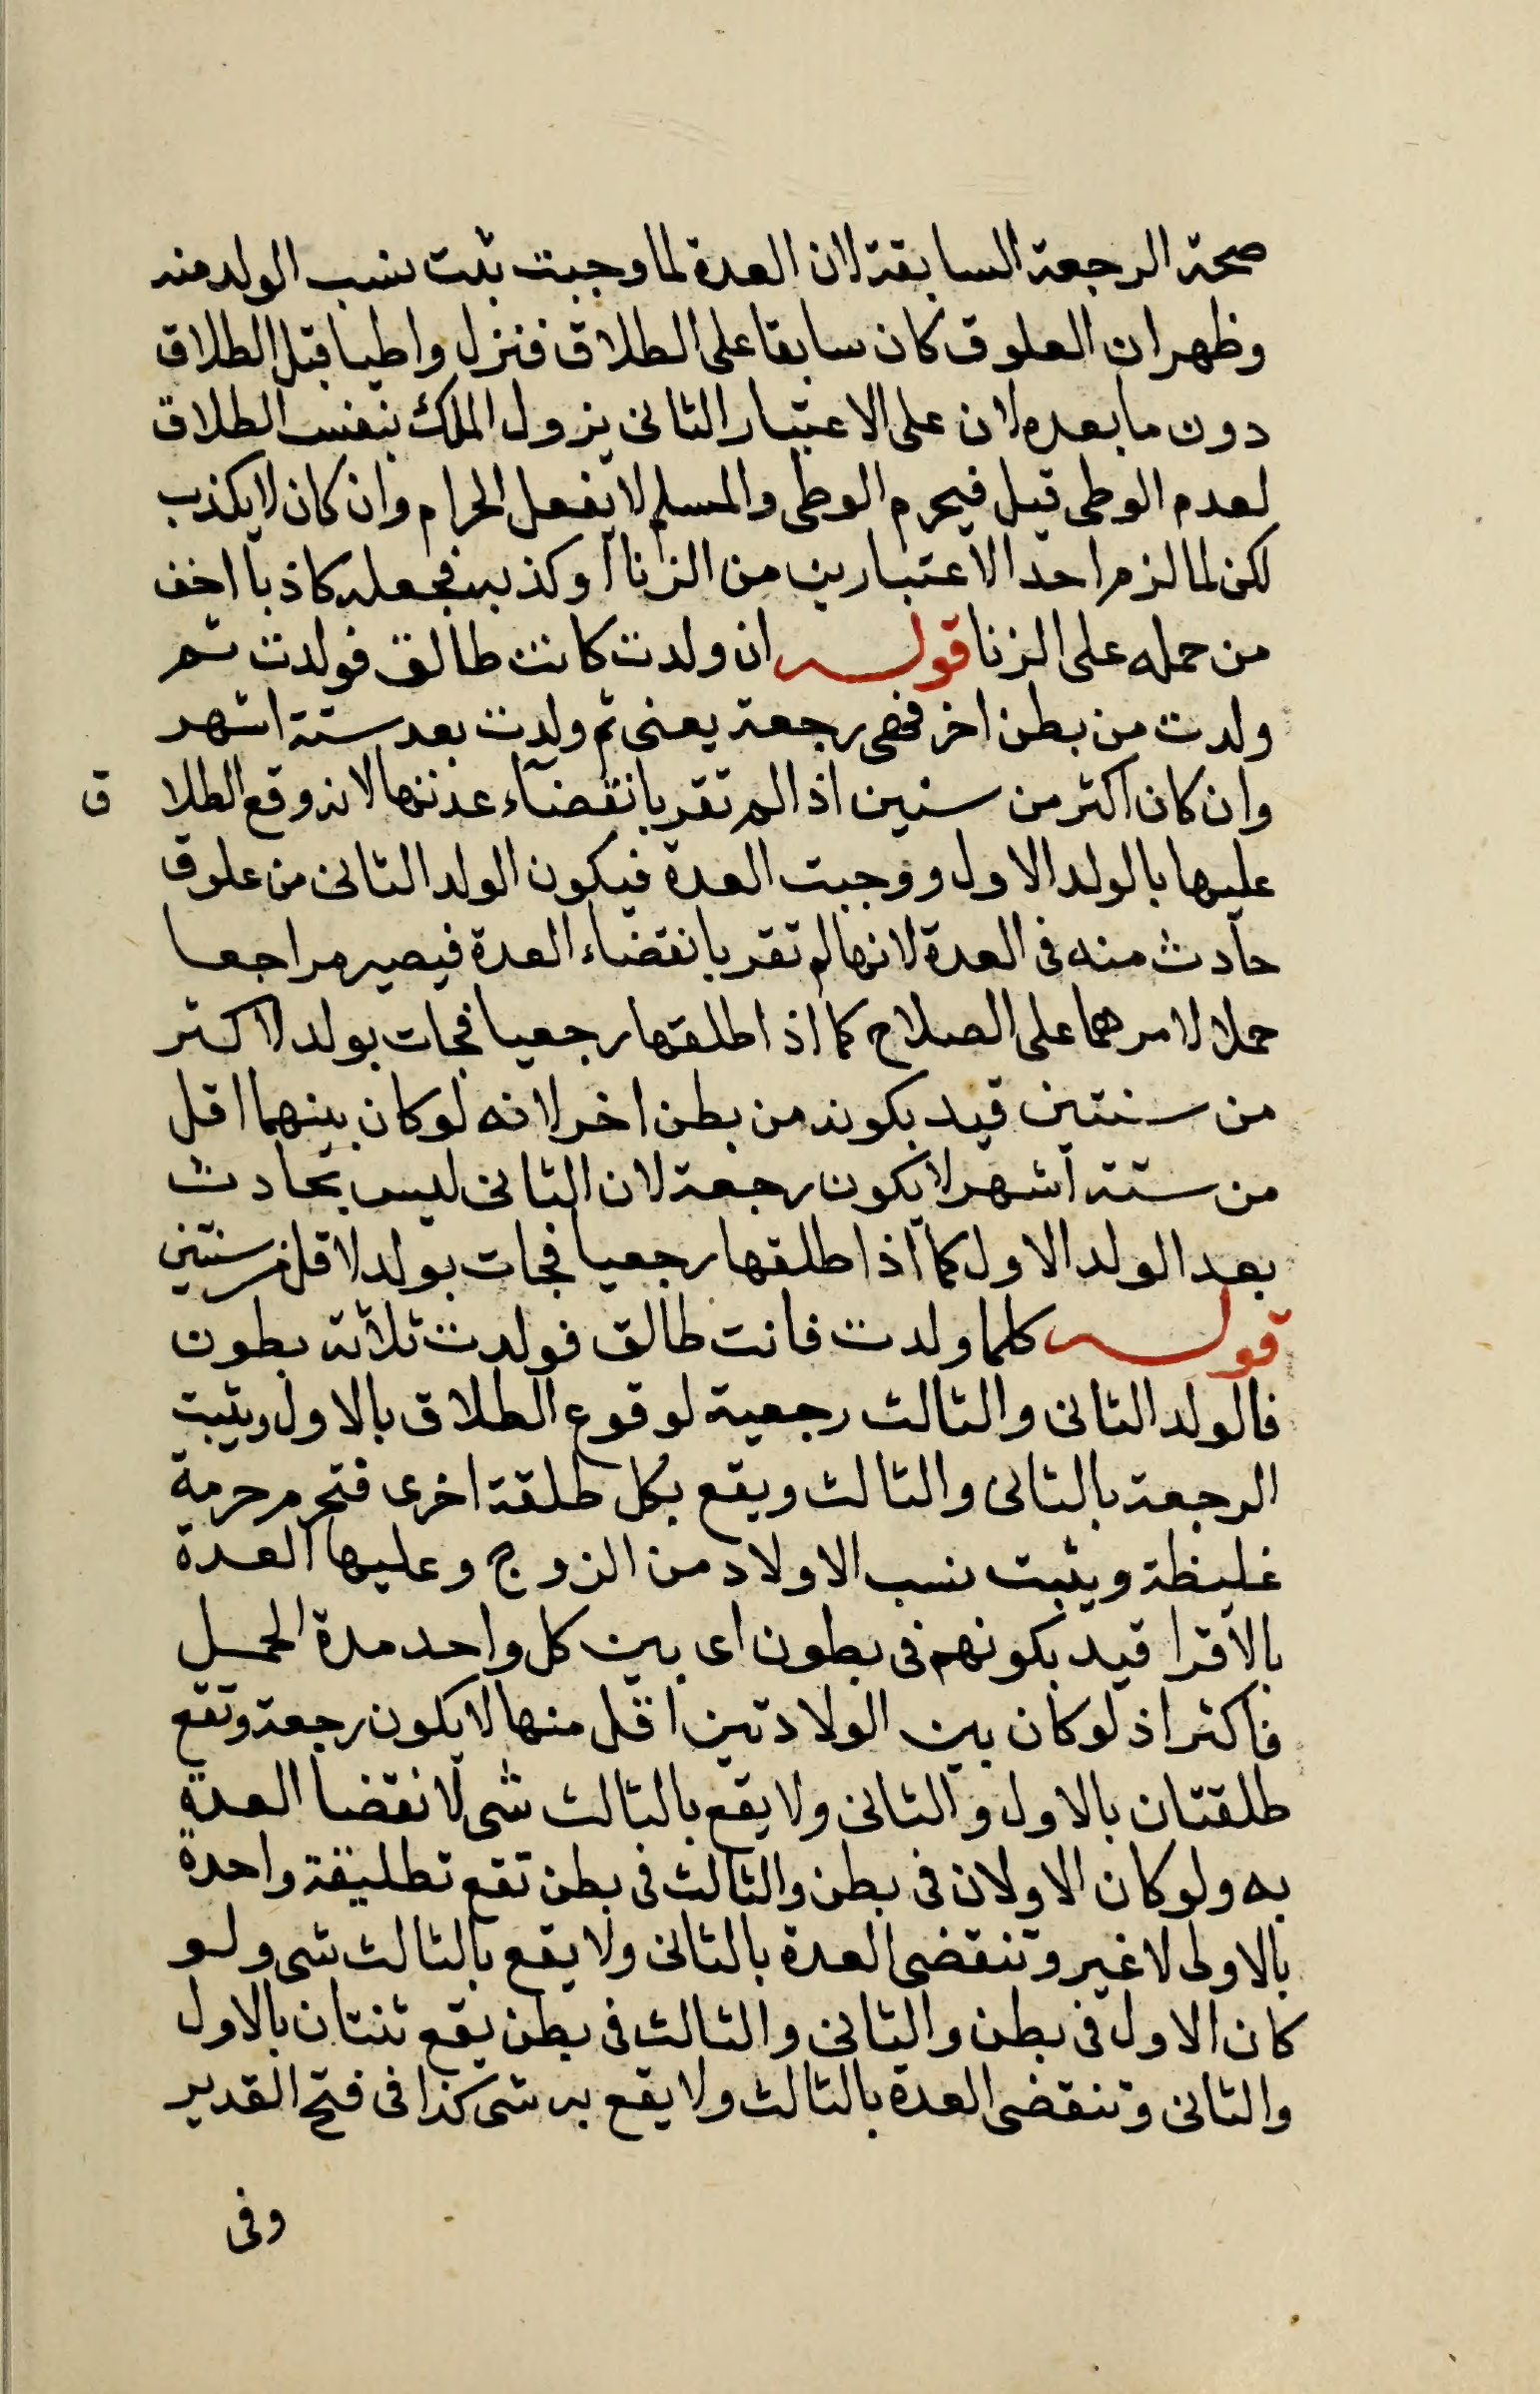 صحة الرجعة السابقة لان العدة لما وجبت ثبت نسب الولد منه
وظهر ان العلوق كان سابقا على الطلاق فنزل واطيا قبل الطلاق
دون ما بعده لان على الاعتبار الثانى يزول الملك بنفس الطلاق
لعدم الوطى قبل فيحرم الوطى والمسلم لا يفعل الحرام وان كان لا يكذب
لكن لما لزم احد الاعتبارين من الزنا او كذبه فجعله كاذبا اخف
من حمله على الزنا قوله ان ولدت كانت طالق فولدت ثم
ولدت من بطن اخر فهى رجعة يعنى ثم ولدت بعد ستة اشهر
وان كان اكثر من سنين اذا لم تقر بانقضاء عدتها لانه وقع الطلاق
عليها بالولد الاول ووجبت العدة فيكون الولد الثانى من علوق
حادث منه فى العدة لانها لم تقر بانقضاء العدة فيصير مراجعا
حملا لامرهما على الصلاح كما اذا طلقها رجعيا فجات بولد لاكثر
من سنتين قيد بكونه من بطن اخر لانه لو كان بينهما اقل
من ستة اشهر لا يكون رجعة لان الثانى ليس بحادث
بعد الولد الاول كما اذا طلقها رجعيا فجات بولد لاقل من سنتين
قوله كلما ولدت فانت طالق فولدت ثلاثة بطون
فالولد الثانى والثالث رجعية لوقوع الطلاق بالاول ويثبت
الرجعة بالثانى والثالث ويقع بكل طلقة اخرى فتحرم حرمة
غليظة ويثبت نسب الاولاد من الزوج وعليها العدة
بالاقرا قيد بكونهم فى بطون اى بين كل واحد مدة الحمل
فاكثر اذ لو كان بين الولادتين اقل منها لا يكون رجعة وتقع
طلقتان بالاول والثانى ولا يقع بالثالث شى لانقضا العدة
به ولو كان الاولان فى بطن والثالث فى بطن تقع تطليقة واحدة
بالاولى لا غير وتنقضى العدة بالثانى ولا يقع بالثالث شى ولو
كان الاول فى بطن والثانى والثالث فى بطن يقع ثنتان بالاول
والثانى وتنقضى العدة بالثالث ولا يقع به شى كذا فى فتح القدير
وفى